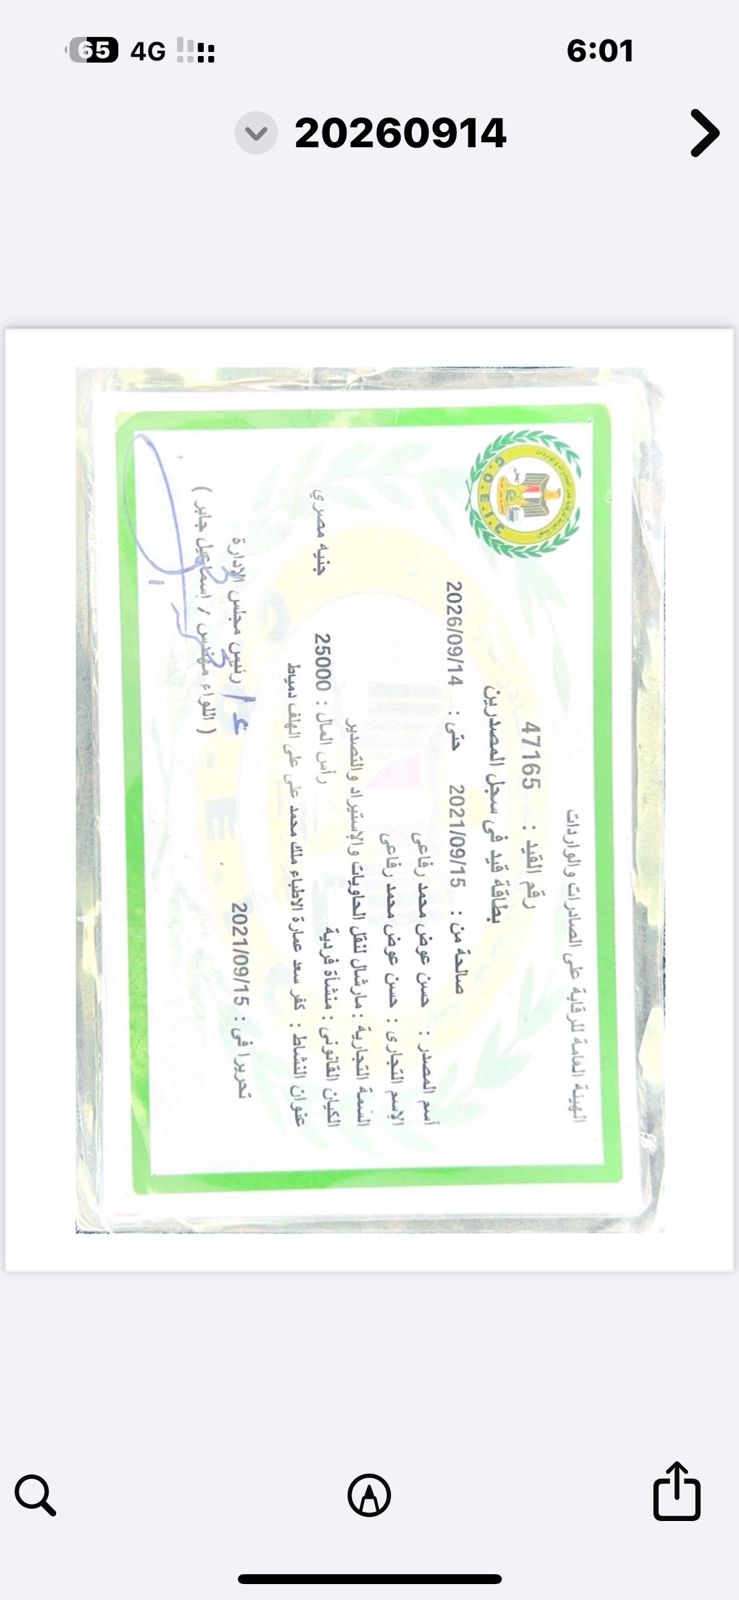 65 4G 6:01
20260914
الهيئة العامة للرقابة على الصادرات والواردات
G.O.E.I.C
رقم القيد : 47165
بطاقة قيد فى سجل المصدرين
صالحة من : 2021/09/15 حتى : 2026/09/14
أسم المصدر : حسن عوض محمد رفاعى
الإسم التجارى : حسن عوض محمد رفاعى
السمة التجارية : مارشال لنقل الحاويات والإستيراد والتصدير
الكيان القانونى : منشأة فردية رأس المال : 25000 جنيه مصري
عنوان النشاط : كفر سعد عمارة الاطباء ملك محمد على على الهلف دمياط
تحريرا فى : 2021/09/15
ع / رئيس مجلس الإدارة
( اللواء مهندس / إسماعيل جابر )